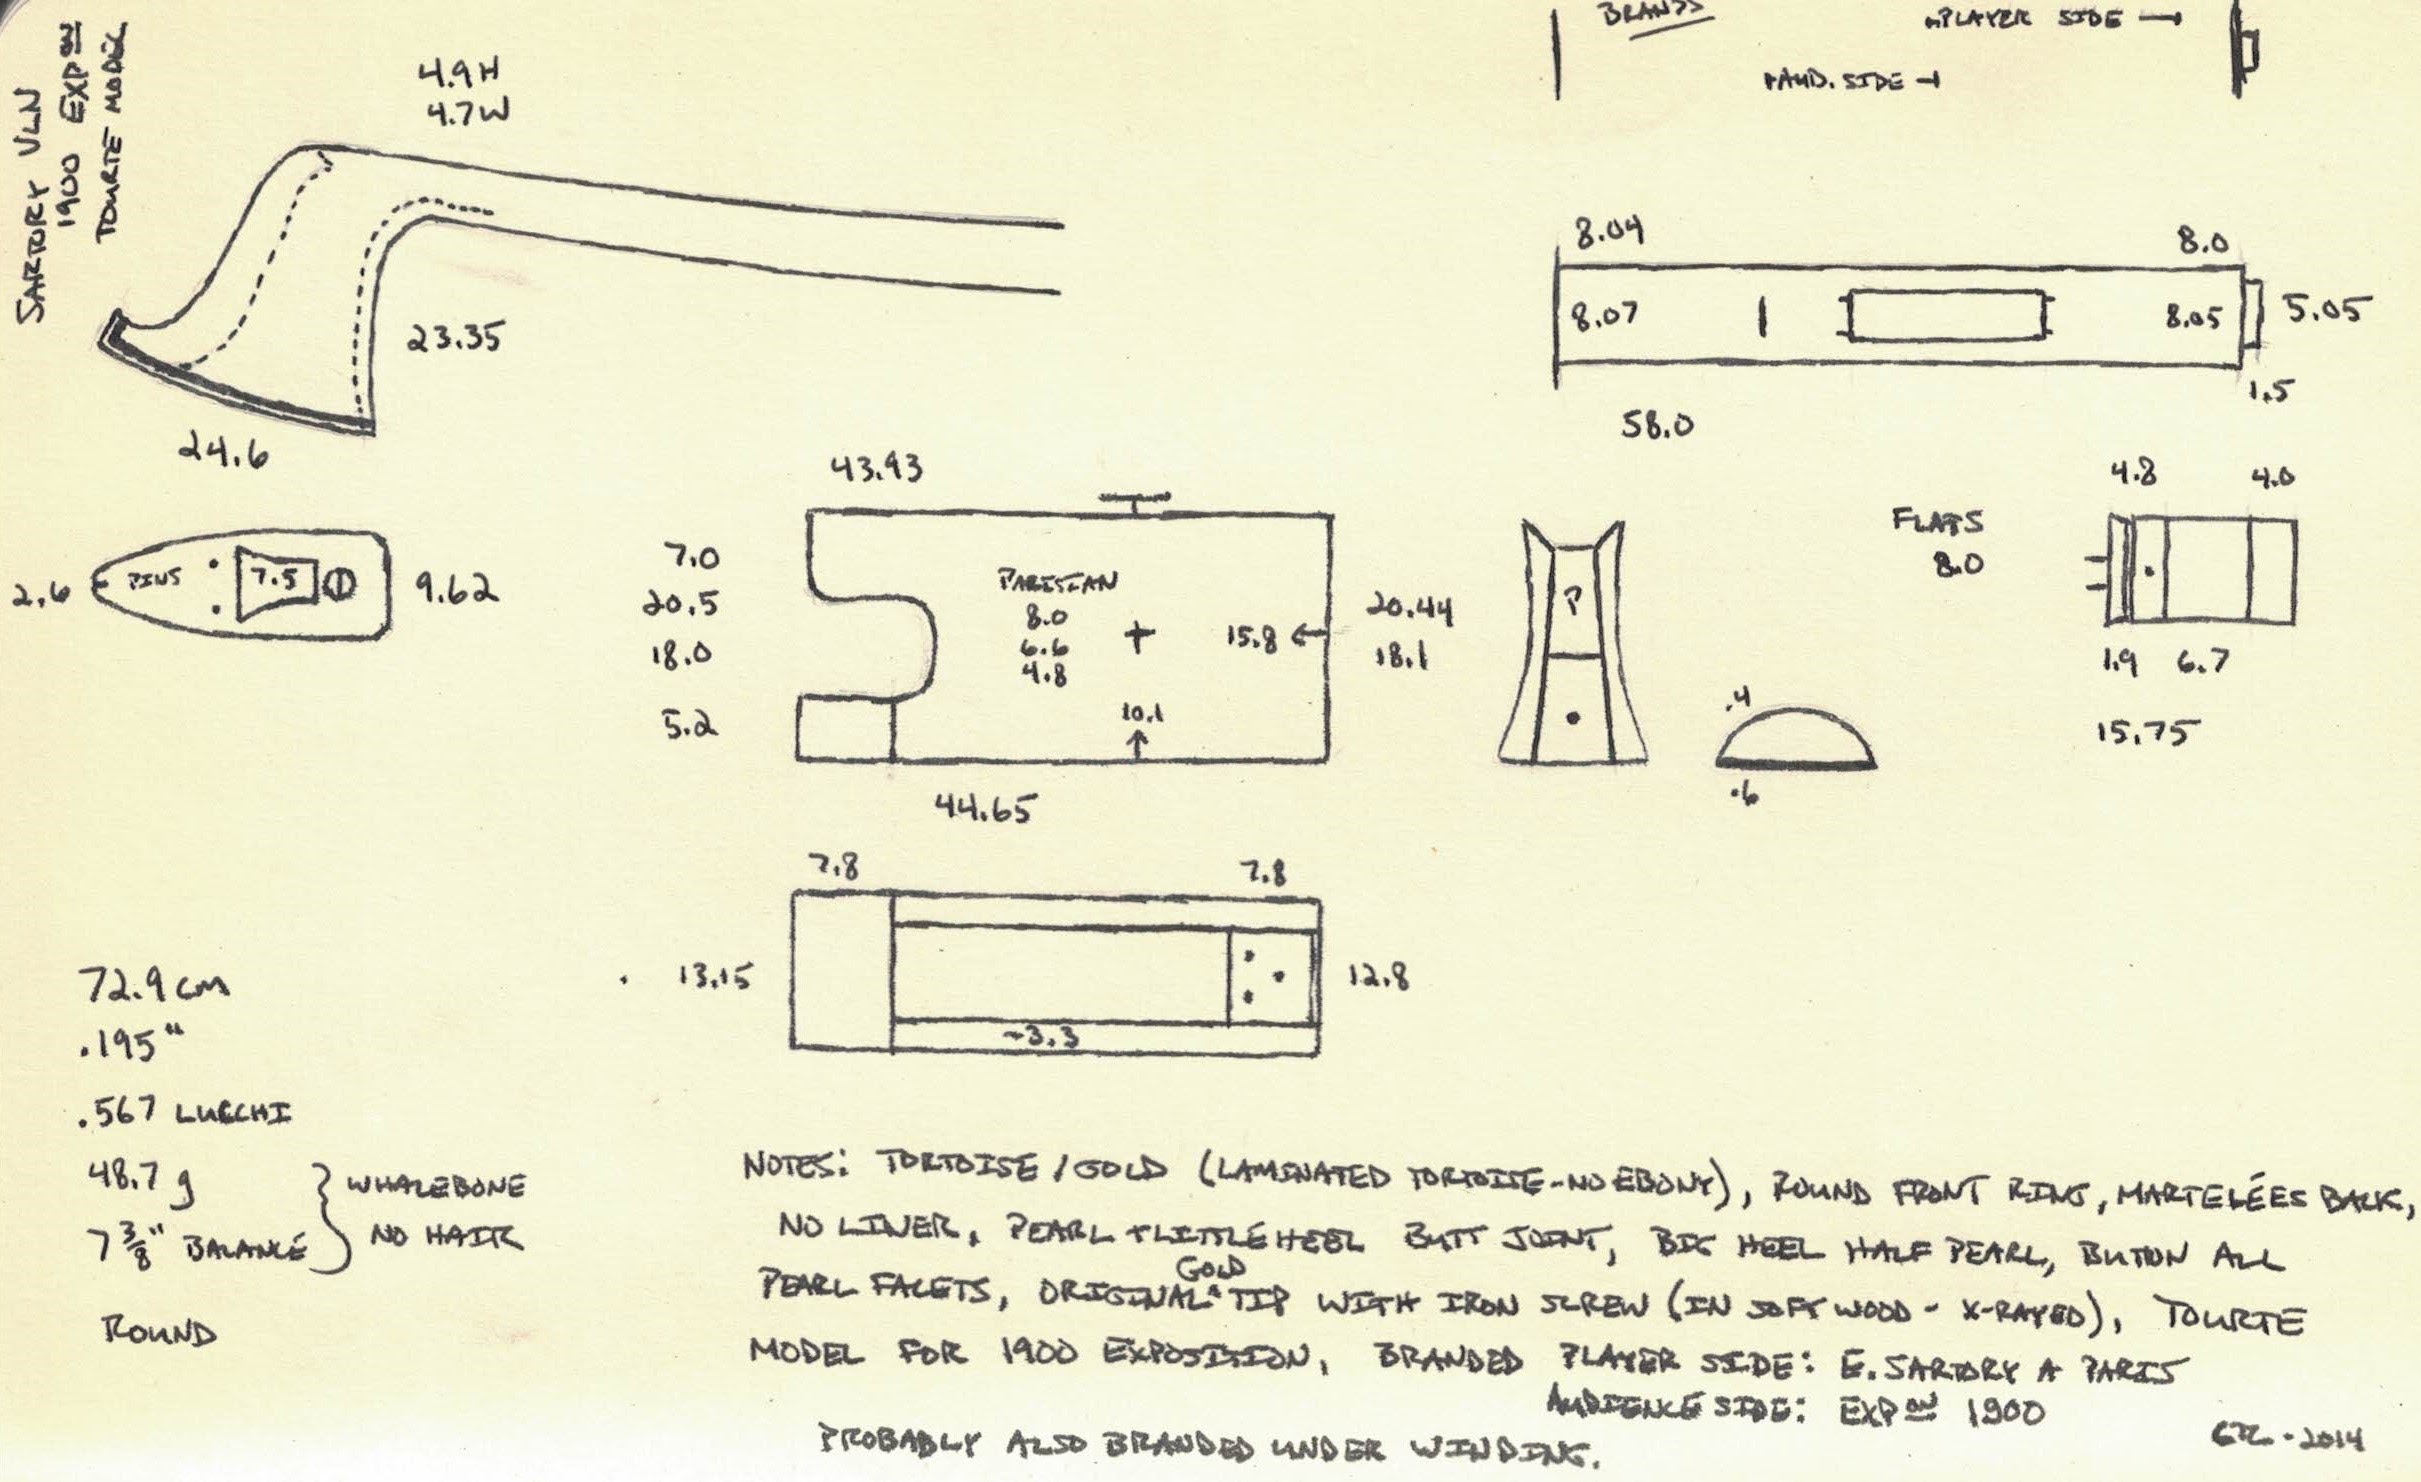 SARTORY VLN
1900 EXPON
TOURTE MODEL
4.9H
4.7W
23.35
24.6
BRANDS
PLAYER SIDE
AUD. SIDE
8.04
8.0
8.07
8.05
5.05
1.5
58.0
2.6
PINS
7.5
9.62
43.93
7.0
20.5
18.0
5.2
PARISIAN
8.0
6.6
4.8
15.8
10.1
20.44
18.1
44.65
P
.4
.6
FLATS
8.0
4.8
4.0
1.9 6.7
15.75
7.8
7.8
13.15
12.8
~3.3
72.9 cm
.195"
.567 LUCCHI
48.7 g
7 3/8" BALANCE
WHALEBONE
NO HAIR
ROUND
NOTES: TORTOISE / GOLD (LAMINATED TORTOISE - NO EBONY), ROUND FRONT RING, MARTELÉES BACK,
NO LINER, PEARL + LITTLE HEEL BUTT JOINT, BIG HEEL HALF PEARL, BUTON ALL
PEARL FACETS, ORIGINAL GOLD TIP WITH IRON SCREW (IN SOFT WOOD - X-RAYED), TOURTE
MODEL FOR 1900 EXPOSITION, BRANDED PLAYER SIDE: E. SARTORY A PARIS
AUDIENCE SIDE: EXPON 1900
PROBABLY ALSO BRANDED UNDER WINDING.
2014